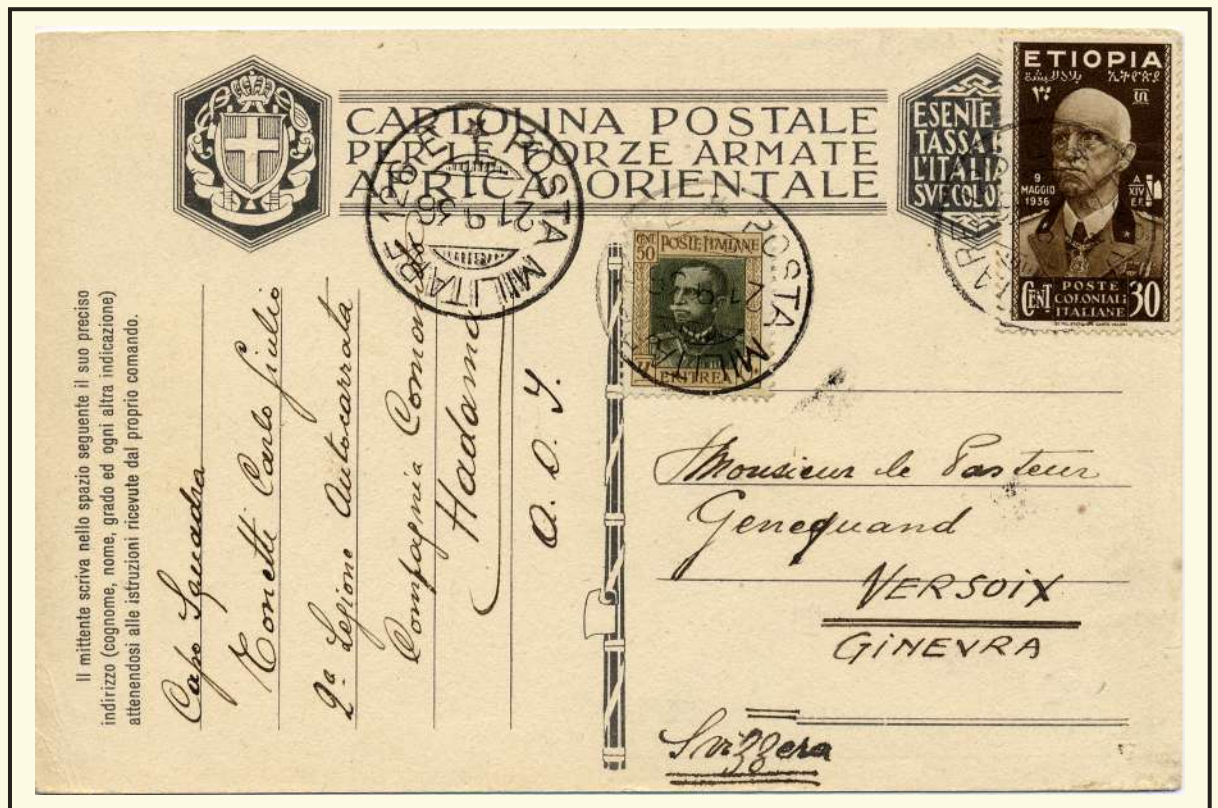 CARTOLINA POSTALE
PER LE FORZE ARMATE
AFRICA ORIENTALE
ESENTE
TASSA
L'ITALIA
SVECOLO
ETIOPIA
ኢትዮጵያ
٣٠
፴
9
MAGGIO
1936
A
XIV
E.F.
POSTE
CENT COLONIALI 30
ITALIANE
POSTA MILITARE
21 9 36
CENT 50 POSTE ITALIANE
ERITREA
POSTA MILITARE
21 9
Il mittente scriva nello spazio seguente il suo preciso
indirizzo (cognome, nome, grado ed ogni altra indicazione)
attenendosi alle istruzioni ricevute dal proprio comando.
Capo Squadra
Carlo Giulio
2ª Legione Autocarrata
Compagnia
Hadama
A. O. I.
Monsieur le Pasteur
Genequand
VERSOIX
GINEVRA
Svizzera